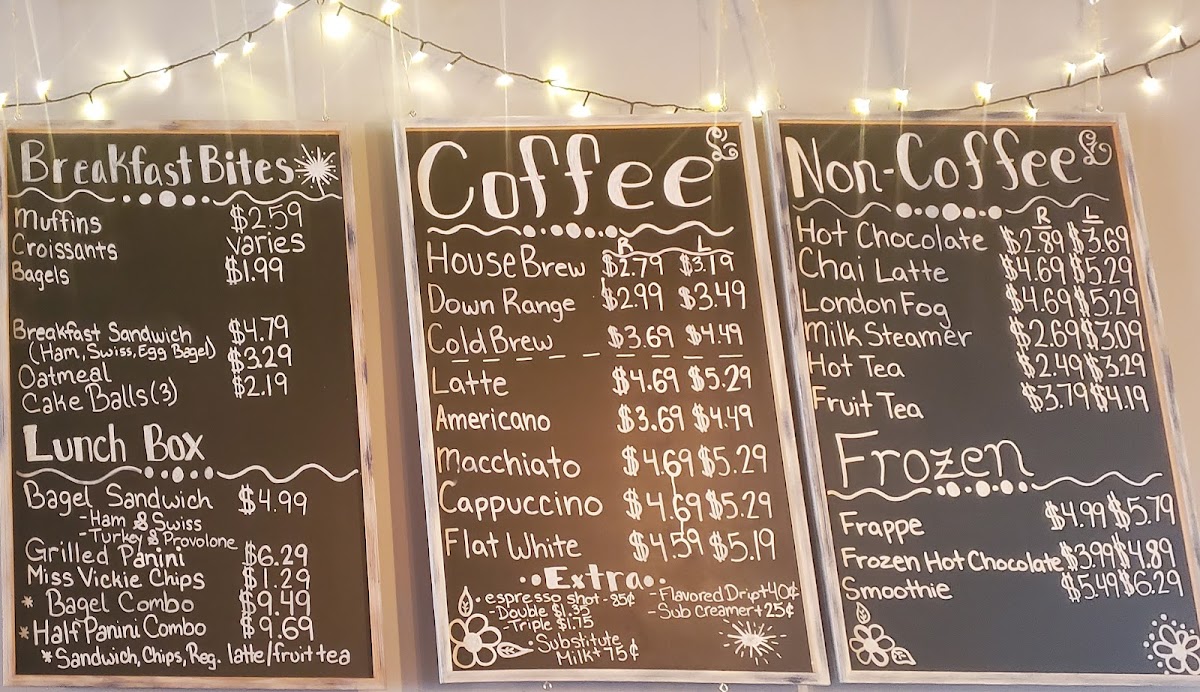 Breakfast Bites
Muffins $2.59
Croissants varies
Bagels $1.99
Breakfast Sandwich $4.79
(Ham, Swiss, Egg Bagel)
Oatmeal $3.29
Cake Balls (3) $2.19
Lunch Box
Bagel Sandwich $4.99
-Ham & Swiss
-Turkey & Provolone
Grilled Panini $6.29
Miss Vickie Chips $1.29
* Bagel Combo $9.49
* Half Panini Combo $9.69
*Sandwich, Chips, Reg. latte/fruit tea
Coffee
R L
House Brew $2.79 $3.19
Down Range $2.99 $3.49
Cold Brew $3.69 $4.49
Latte $4.69 $5.29
Americano $3.69 $4.49
Macchiato $4.69 $5.29
Cappuccino $4.69 $5.29
Flat White $4.59 $5.19
Extra
espresso shot - 85¢
-Double $1.35
-Triple $1.75
Substitute
Milk + 75¢
-Flavored Drip + 40¢
-Sub creamer + 25¢
Non-Coffee
R L
Hot Chocolate $2.89 $3.69
Chai Latte $4.69 $5.29
London Fog $4.69 $5.29
Milk Steamer $2.69 $3.09
Hot Tea $2.49 $3.29
Fruit Tea $3.79 $4.19
Frozen
Frappe $4.99 $5.79
Frozen Hot Chocolate $3.99 $4.89
Smoothie $5.49 $6.29